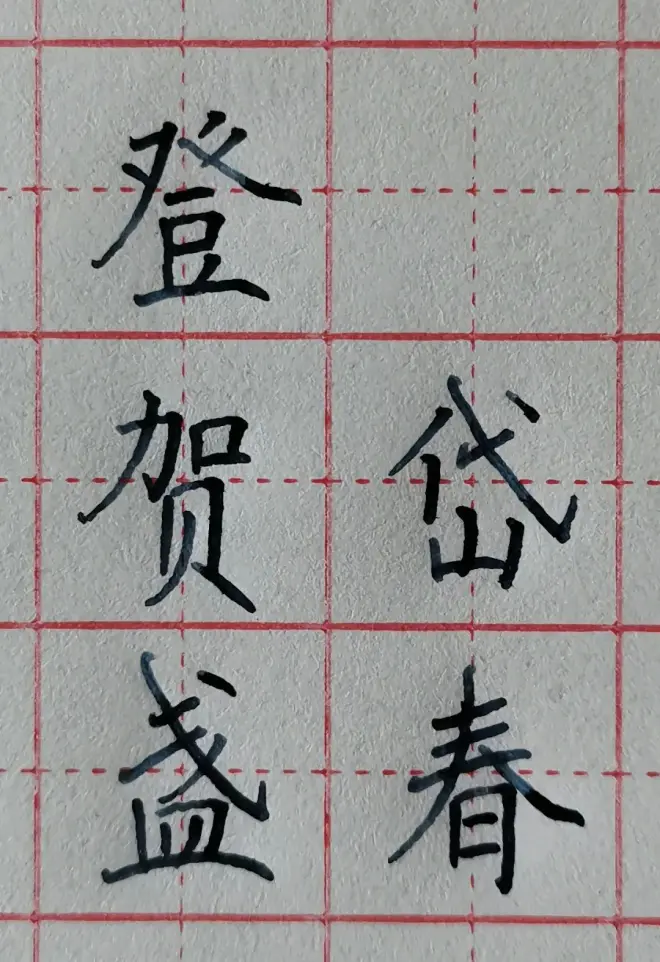 登
贺岱
盏春